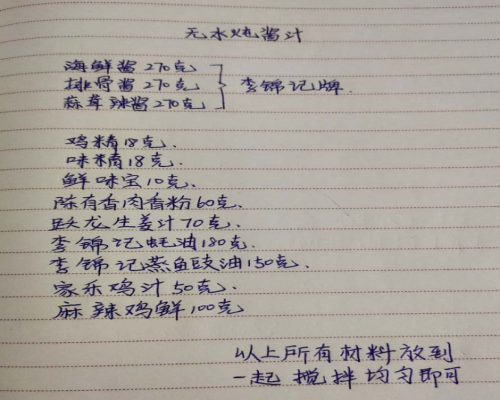 无水炖酱汁
海鲜酱270克
排骨酱270克 李锦记牌.
蒜茸辣酱270克
鸡精18克.
味精18克.
鲜味宝10克.
陈有香肉香粉60克.
跃龙生姜汁70克.
李锦记蚝油180克.
李锦记蒸鱼豉油150克.
家乐鸡汁50克.
麻辣鸡鲜100克
以上所有材料放到
一起搅拌均匀即可